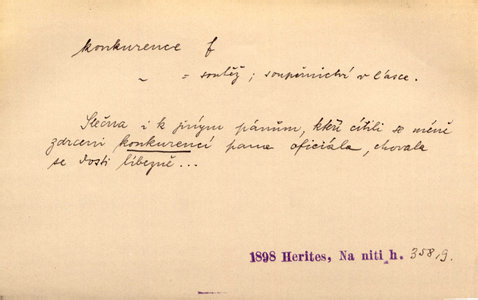 konkurence f
~ = soutěž; soupeřnictví v lásce.
Slečna i k jiným pánům, kteří cítili se méně
zdrceni konkurencí pana oficiála, chovala
se dosti líbezně...
1898 Herites, Na niti h. 358,9.